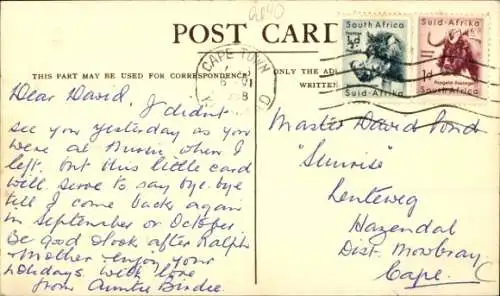 2040
POST CARD
THIS PART MAY BE USED FOR CORRESPONDENCE
ONLY THE AD
WRITTEN
CAPE TOWN
South Africa
½d
Suid-Afrika
Suid-Afrika
1d
South Africa
Dear David,
I didn't
see you yesterday as you
were at Music when I
left. but this little card
will serve to say bye-bye
till I come back again
in September or October
Be good & look after Ralph
& Mother - enjoy your
holidays. with love
from Auntie Birdie.
Master David Pond
"Sunrise"
Lenteweg
Hazendal
Dist. Mowbray
Cape.